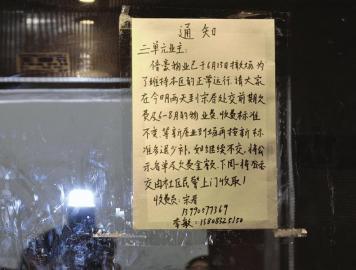 通知
三单元业主:
物业已于6月15日撤场,为
了维持本区的正常运行,请大家
在今明两天到宗居处交前期欠
费及6-8月的物业费,收费标准
不变,等新居业到场再按新标
准多退少补,如继续不交,将公
示各单元欠费金额,下周一将公示
交由社区民警上门收取!
收费员:宗居
13990577369
李敏:15808325150